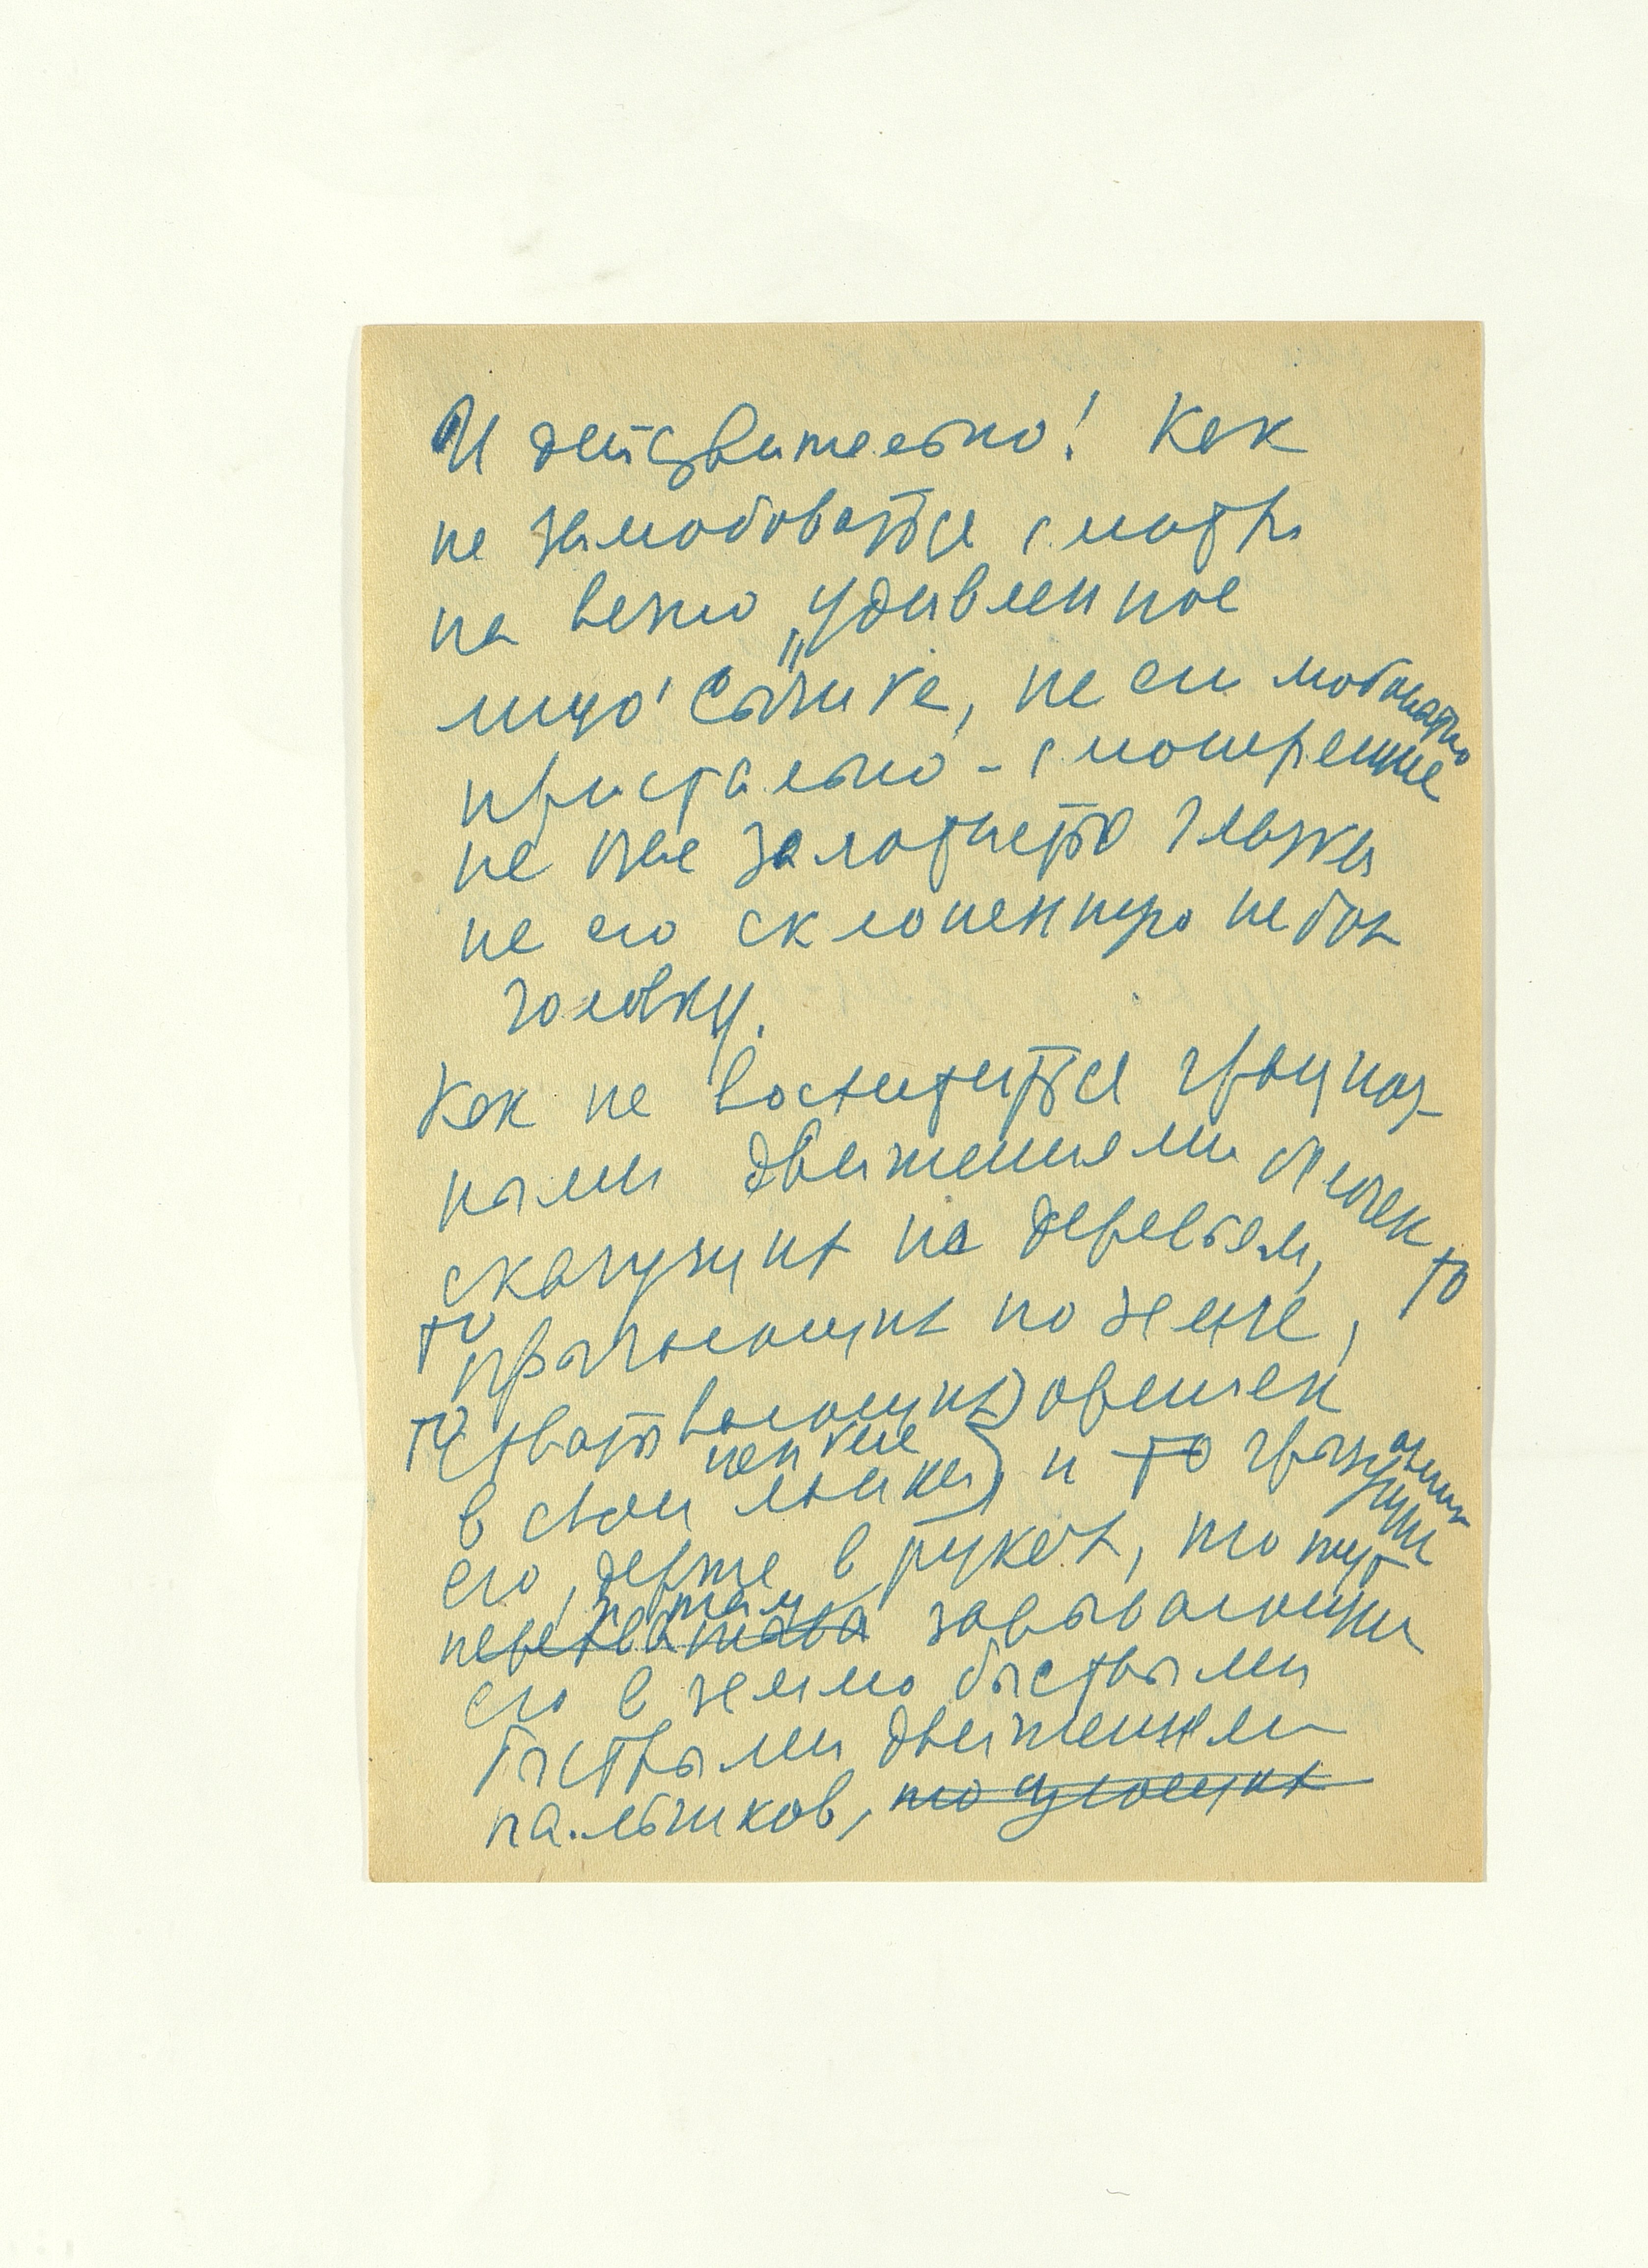 И действительно! Как
не залюбоваться смотря
на вечно „удивленное
лицо" Сычика, на ея любопытно
пристально-смотрящие
на вас золотистые глазки
на его склоненную на бок
головку.
Как не восхититься грациоз-
ными движениями белочек
скачущих по деревьям, то
то прыгающих по земле,
то схватывающих орешек
в свои цепкие лапки, и то грызущих
его, держа в руках, то тут
и там зарывающих
его в землю быстрыми
быстрыми движениями
пальчиков, то